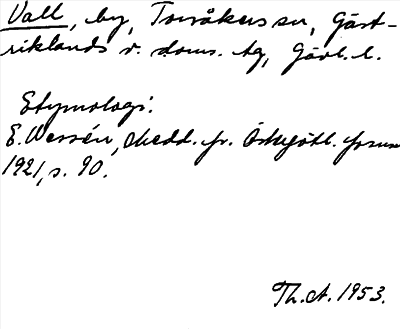 Vall, by, Torsåkers sn, Gäst-
riklands v. doms. tg, Gävl. l.
Etymologi:
E. Wessén, Medd. fr. Östergötl. fornm
1921, s. 90.
Th. A. 1953.